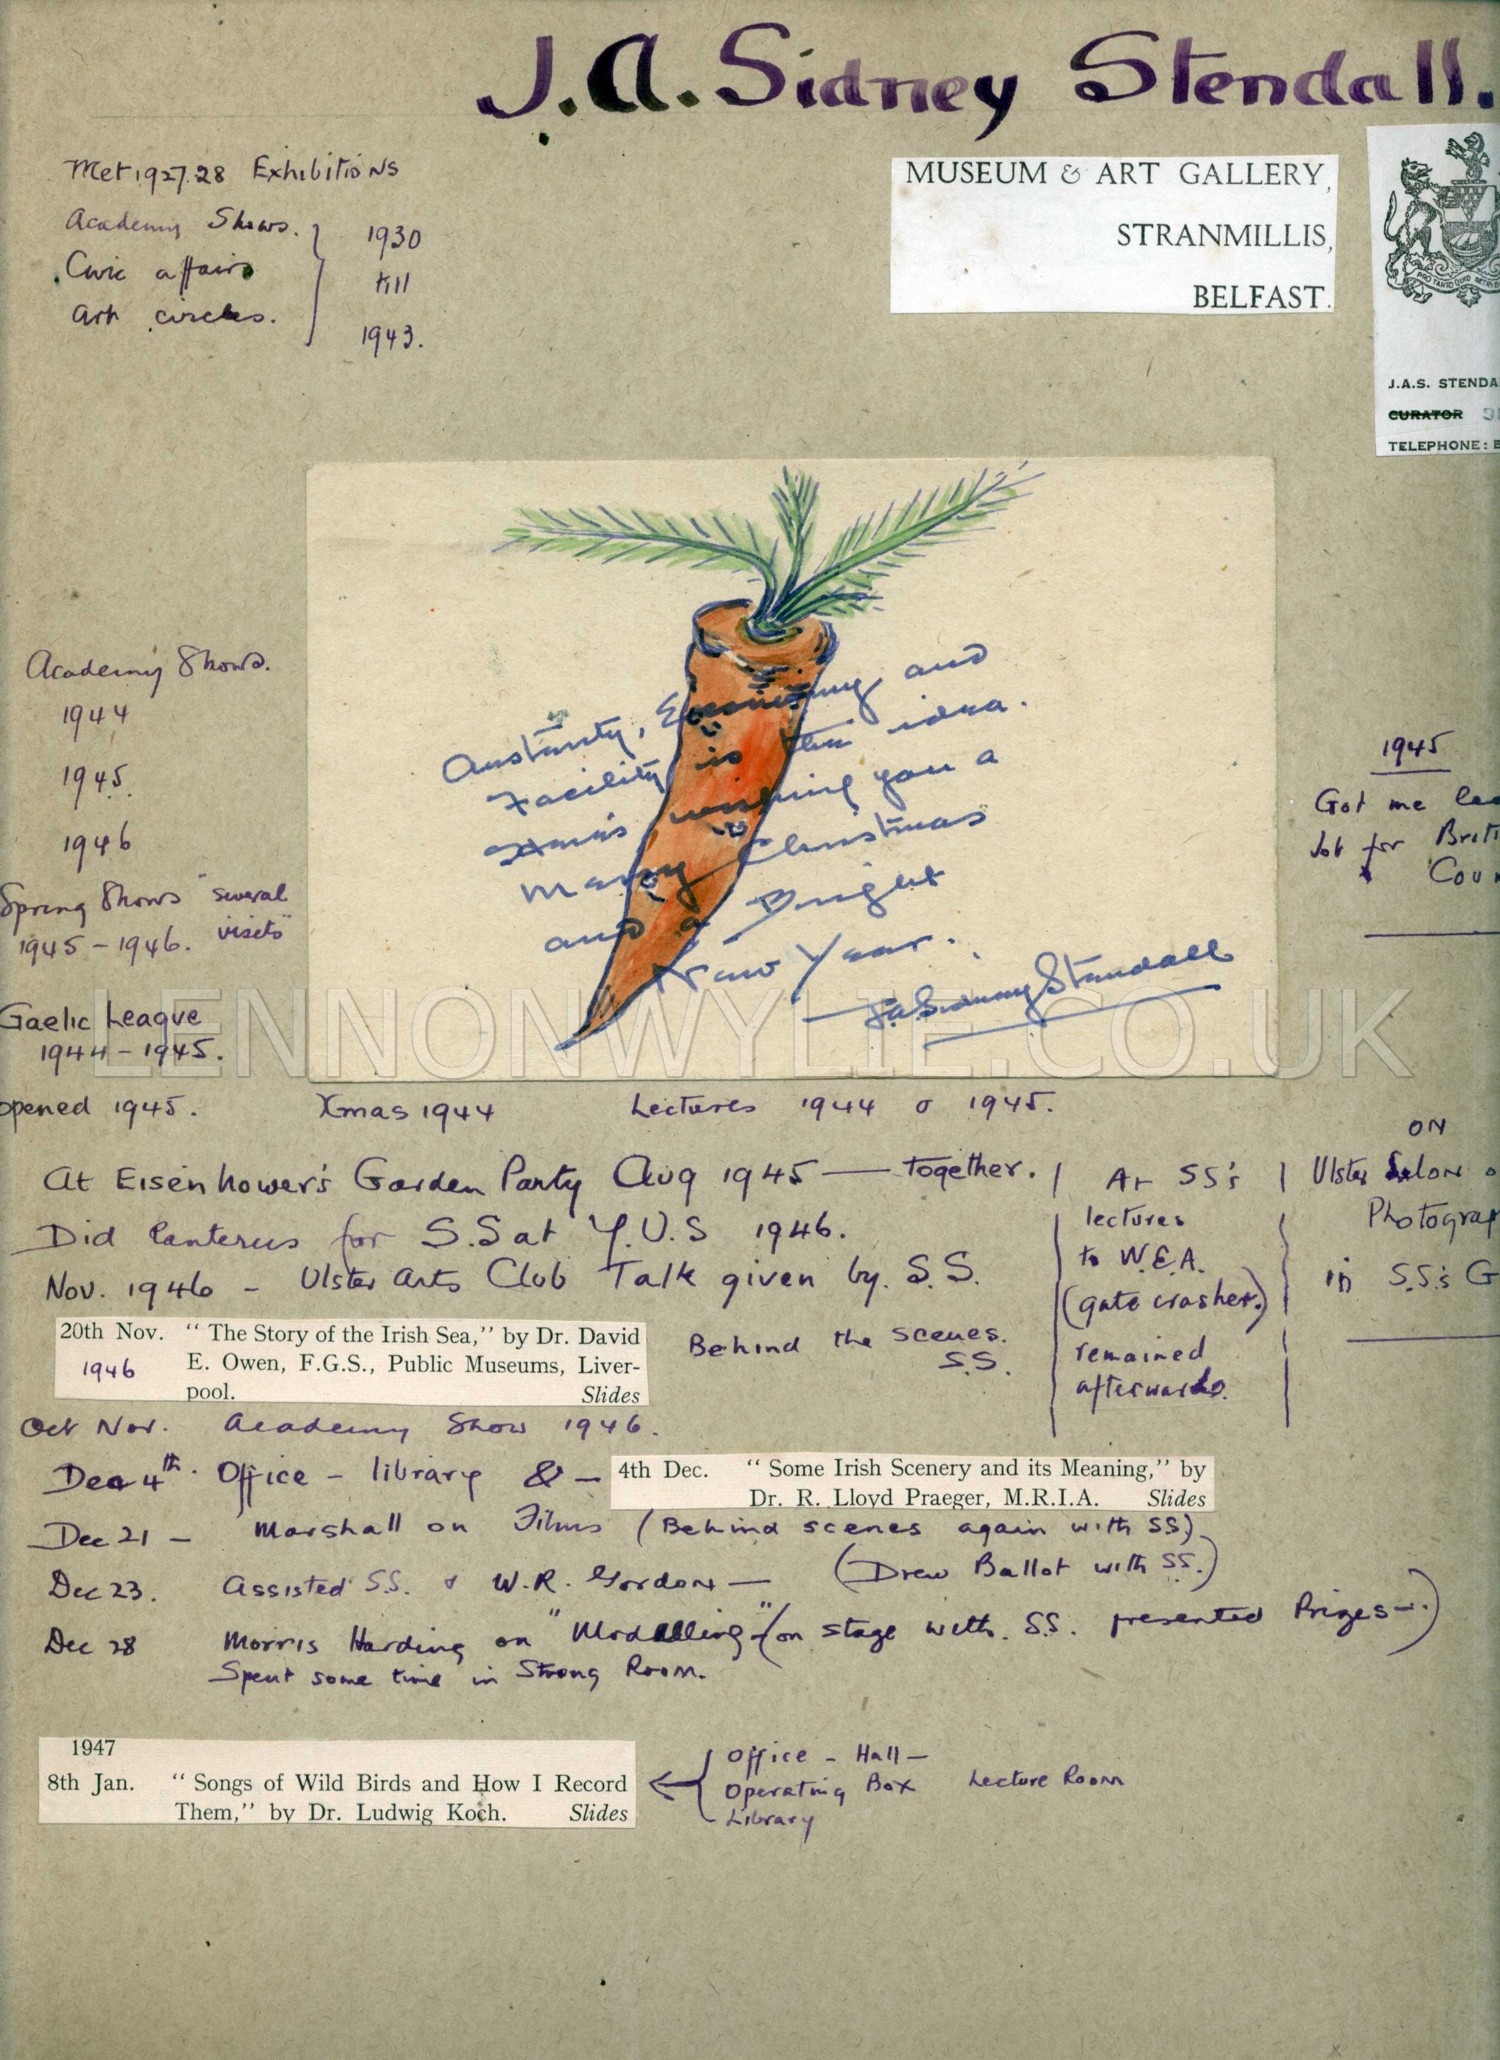 J.A. Sidney Stendall.
Met 1927.28 Exhibitions
Academy Shows.
Civic affairs
Art circles.
1930
till
1943.
MUSEUM & ART GALLERY,
STRANMILLIS,
BELFAST.
J.A.S. STENDA
CURATOR
TELEPHONE: B
Austerity, Economy and
Facility is the idea.
Xmas wishing you a
Merry Christmas
and a Bright
New Year.
J.A. Sidney Stendall
Academy Shows.
1944
1945.
1946
Spring Shows "several
1945 - 1946. visits"
Gaelic League
1944 - 1945.
opened 1945.
1945
Got me
Job for Briti
Coun
LENNONWYLIE.CO.UK
Xmas 1944
Lectures 1944 & 1945.
At Eisenhower's Garden Party Aug 1945 — together.
Did lanterns for S.S at Y.U.S 1946.
Nov. 1946 - Ulster Arts Club Talk given by. S.S.
At SS's
lectures
to W.E.A.
(gate crasher.)
remained
afterwards.
ON
Ulster Salon o
Photograp
in S.S.'s G
20th Nov. "The Story of the Irish Sea," by Dr. David
1946 E. Owen, F.G.S., Public Museums, Liver-
pool. Slides
Behind the scenes.
S.S.
Oct Nov. Academy Show 1946.
Dec 4th. Office - library & -
4th Dec. "Some Irish Scenery and its Meaning," by
Dr. R. Lloyd Praeger, M.R.I.A. Slides
Dec 21 - Marshall on Films (Behind scenes again with SS)
Dec 23. Assisted S.S. & W.R. Gordon — (Drew Ballot with SS.)
Dec 28 Morris Harding on "Modelling" - (on stage with S.S. presented Prizes -.)
Spent some time in Strong Room.
1947
8th Jan. "Songs of Wild Birds and How I Record
Them," by Dr. Ludwig Koch. Slides
Office - Hall -
Operating Box Lecture Room
Library